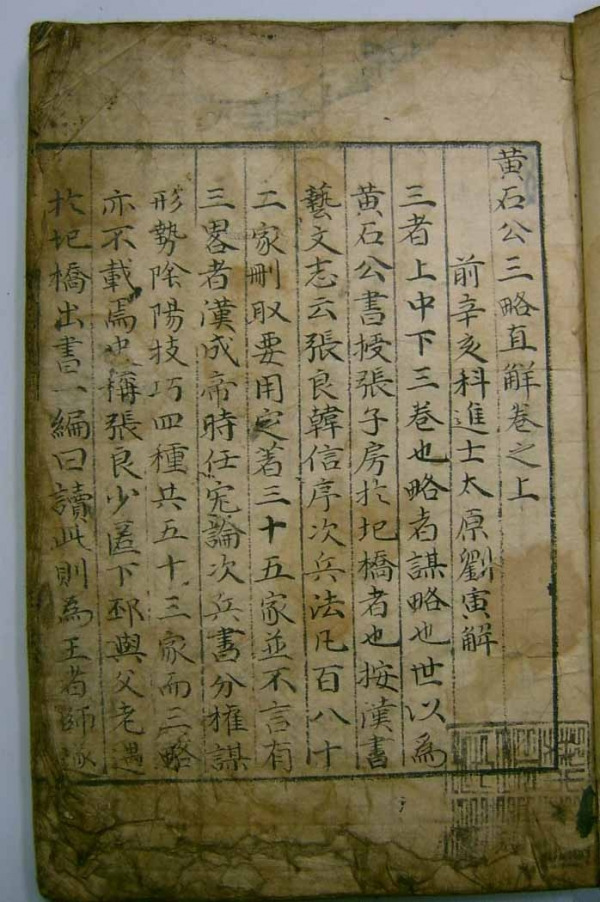 黄石公三略直解卷之上
前辛亥科進士太原劉寅解
三者上中下三卷也略者謀略也世以為
黄石公書授張子房於圯橋者也按漢書
藝文志云張良韓信序次兵法凡百八十
二家刪取要用定著三十五家並不言有
三畧者漢成帝時任宏論次兵書分權謀
形勢陰陽技巧四種共五十三家而三略
亦不載焉史稱張良少匿下邳與父老遇
於圯橋出書一編曰讀此則為王者師遂